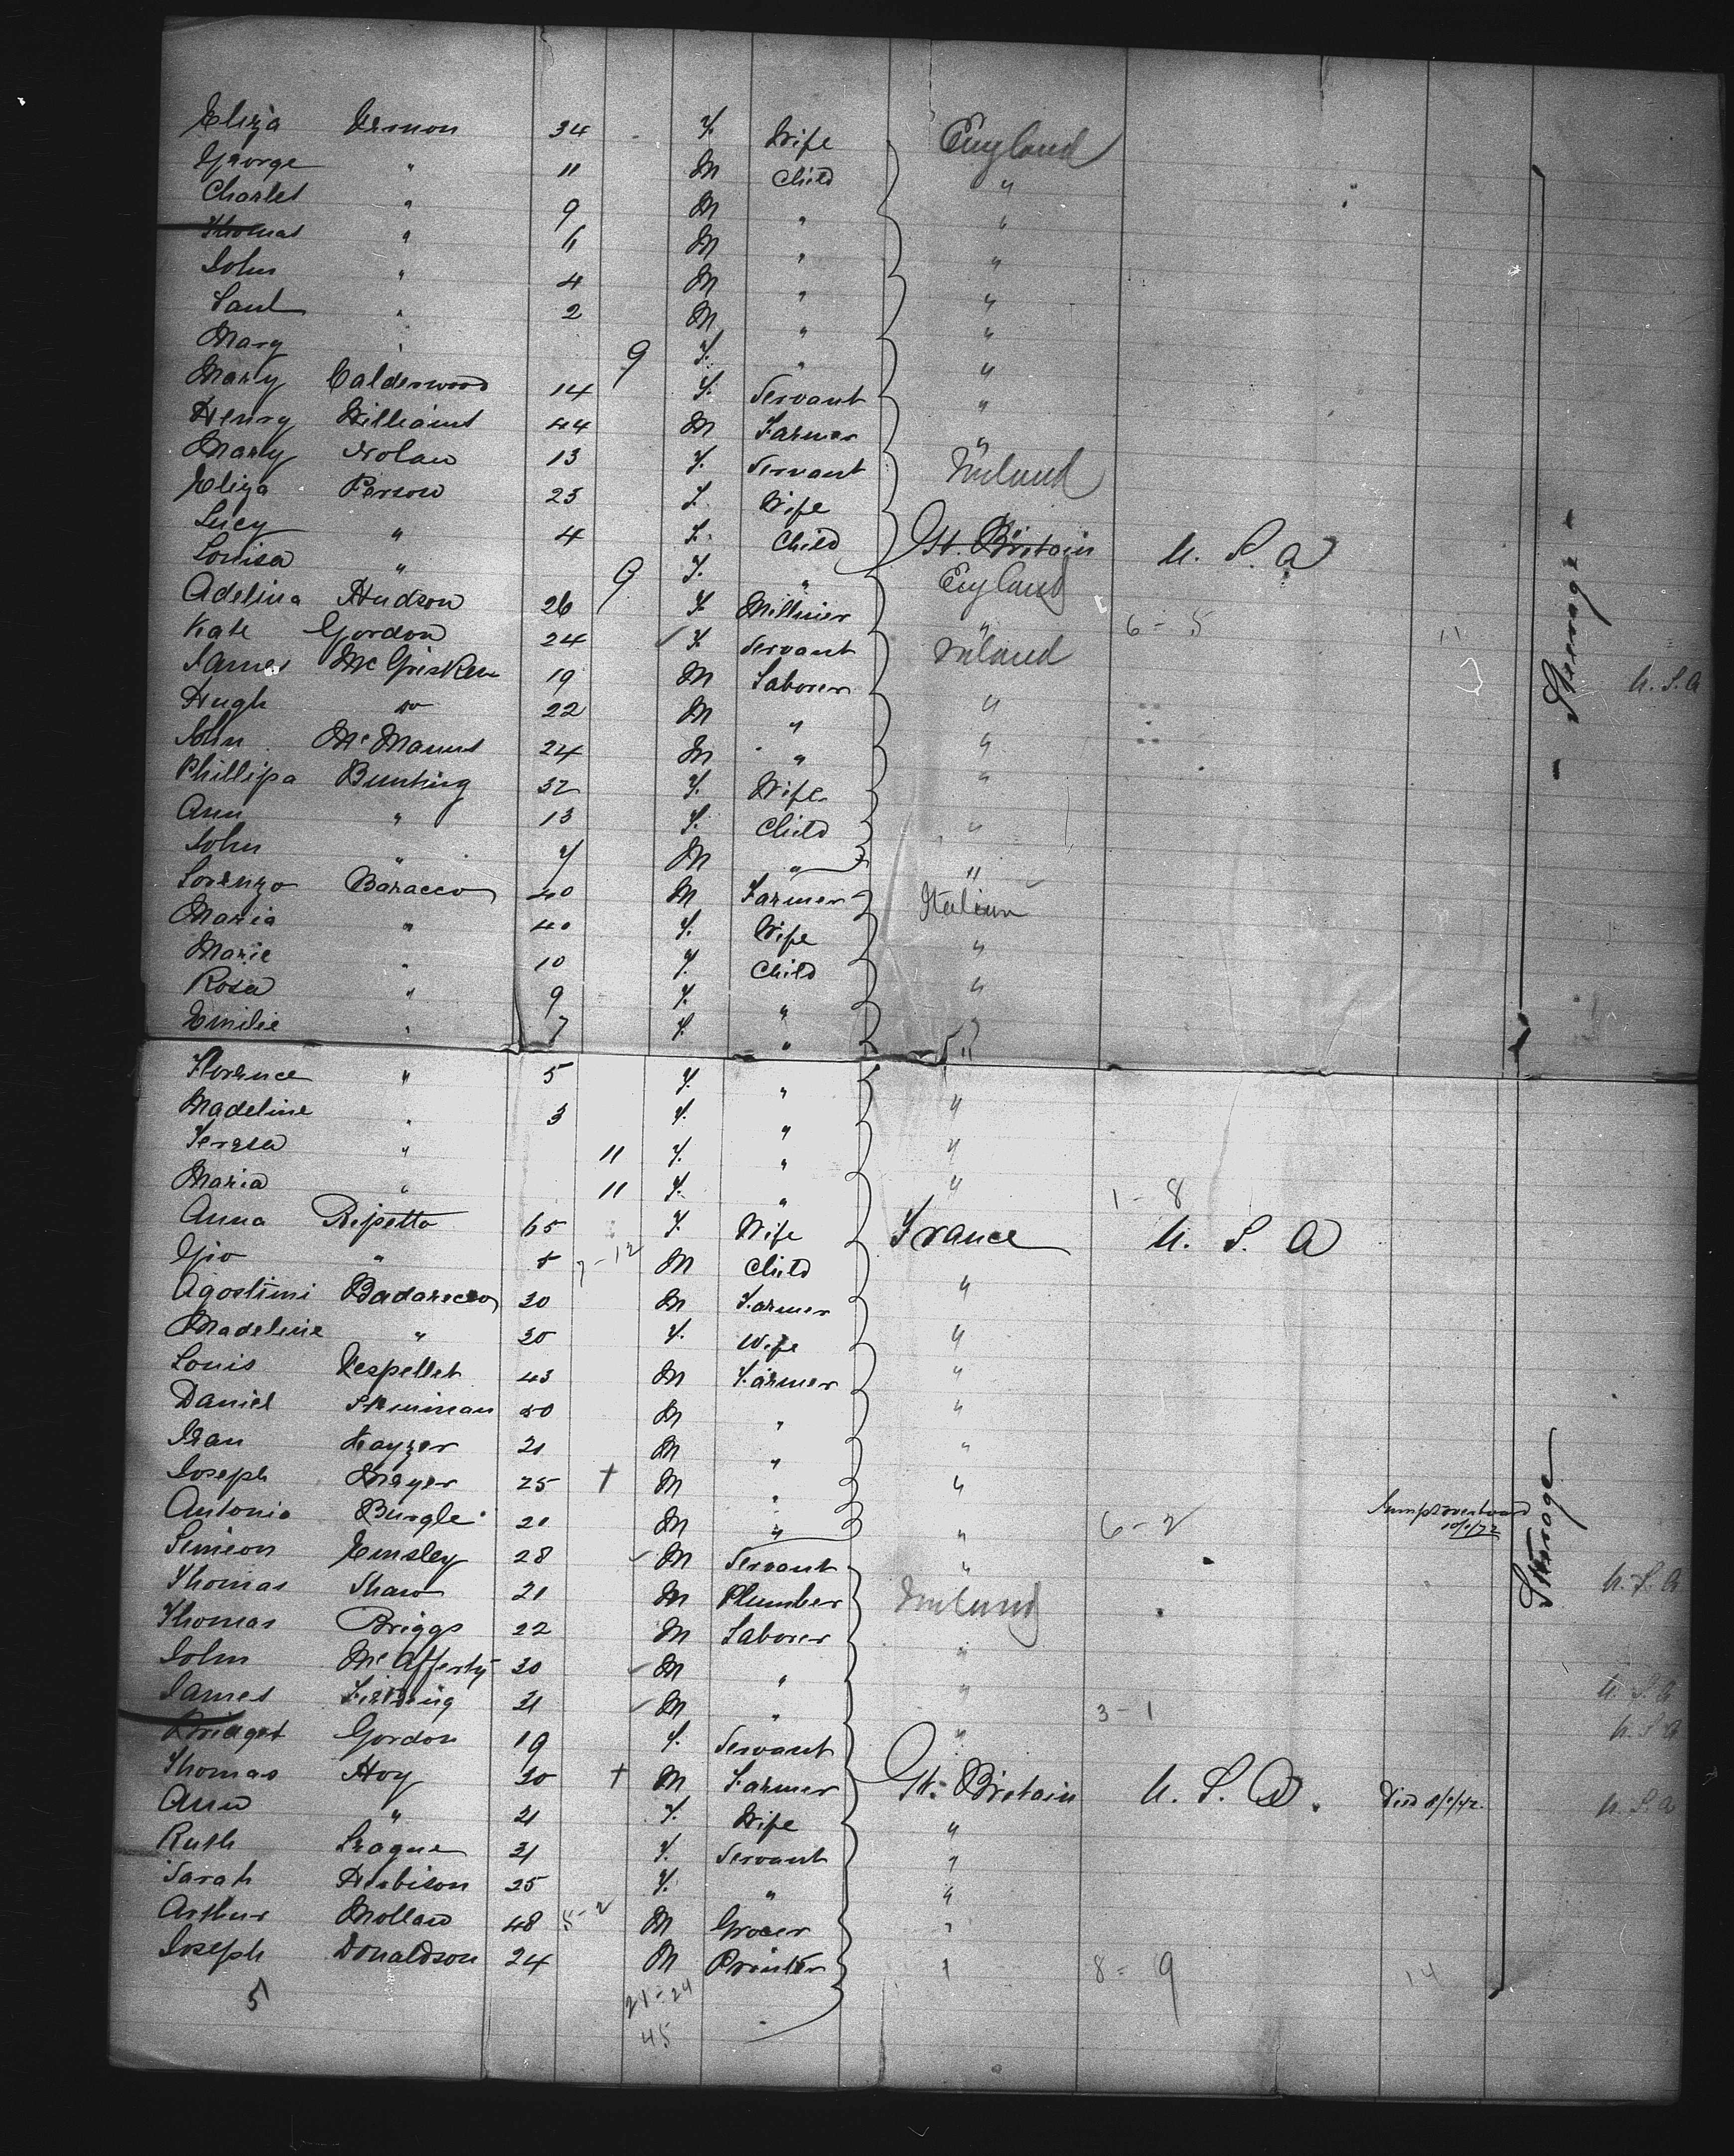 Eliza Vernon 34 F. Wife England
George " 11 M Child "
Charles " 9 M " "
Thomas " 6 M " "
John " 4 M " "
Saul " 2 M " "
Mary " 9 F. " "
Mary Calderwood 14 F. Servant "
Henry Williams 44 M Farmer "
Mary Nolan 13 F. Servant Ireland
Eliza Person 25 F. Wife
Lucy " 4 F. Child Gt. Britain U. S. A
Louisa " 9 F. " England
Adelina Hudson 26 F. Milliner " 6-5 11
Kate Gordon 24 F. Servant Ireland
James McGrisken 19 M Laborer U.S.A
Hugh do 22 M " "
John McManus 24 M " "
Phillipa Bunting 32 F. Wife "
Ann " 13 F. Child "
John " 7 M " "
Lorenzo Baracco 40 M Farmer Italian
Maria " 40 F. Wife "
Marie " 10 F. Child "
Rosa " 9 F. "
Emilie " 7 F. " "
- Steerage -
Florence " 5 F. " "
Madeline " 3 F. " "
Teresa " 11 F. " "
Maria " 11 F. " 1-8
Anna Repetto 65 F. Wife France U. S. A
Gio " 8 7-12 M Child
Agostini Badaracco 30 M Farmer "
Madeline " 30 F. Wife "
Louis Vespellet 43 M Farmer "
Daniel 50 M " "
Jean Kayzer 21 M " "
Joseph Meyer 25 + M " "
Antonio Burgle 21 M " " 6-2 Jumped overboard
Simeon Emsley 28 M Servant " U.S.A
Thomas Shaw 21 M Plumber Ireland
Thomas Briggs 22 M Laborer "
John McAfferty 30 M " " U.S.A
James 21 M " " 3-1 U.S.A
Bridget Gordon 19 F. Servant
Thomas Hoy 30 + M Farmer Gt. Britain U. S. A. Died U.S.A
Ann " 21 F. Wife "
Ruth 21 F. Servant "
Sarah Herbison 25 F. " "
Arthur Mollan 48 5-2 M Grocer "
Joseph Donaldson 24 M Printer " 8-9 14
Steerage
5 21-24
45